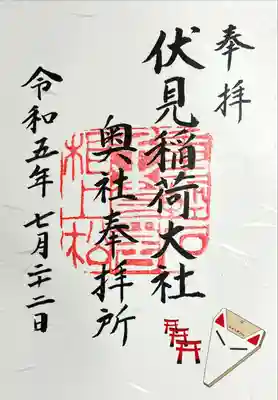 奉拝
伏見稲荷大社
奥社奉拝所
令和五年七月二十二日